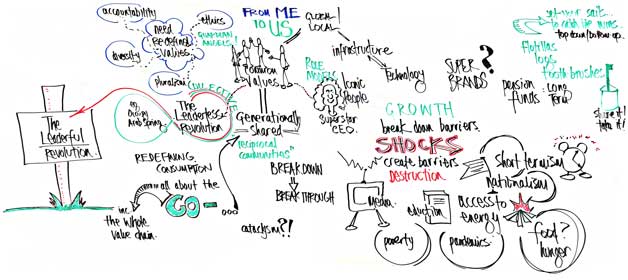 accountability
ethics
need
Redefined
Values
GUARDIAN
ANGELS!
diversity
pluralism
FROM ME
TO
US
GLOBAL!
LOCAL
infrastructure
Technology
common
values
COLLECTIVE
The
Leaderless
Revolution
eg.
Occupy
Arab Spring
The
Leaderful
Revolution
Generationally
shared
reciprocal
communities"
ROLE
MODELS
Iconic
People
Superstar
CEO.
SUPER
BRANDS
?
pension
funds:
Long
Term
set your sails
to catch the winds
top down/bottom up.
Flotillas
logs
tooth brushes
share it!
GROWTH
break down barriers.
SHOCKS
create barriers
DESTRUCTION
REDEFINING
CONSUMPTION
all about the
CO-...
inc.
the whole
value chain.
BREAKDOWN
BREAKTHROUGH
cataclysm?!
Media
education
poverty
pandemics
access to
energy
short termism
nationalism
food?
hunger